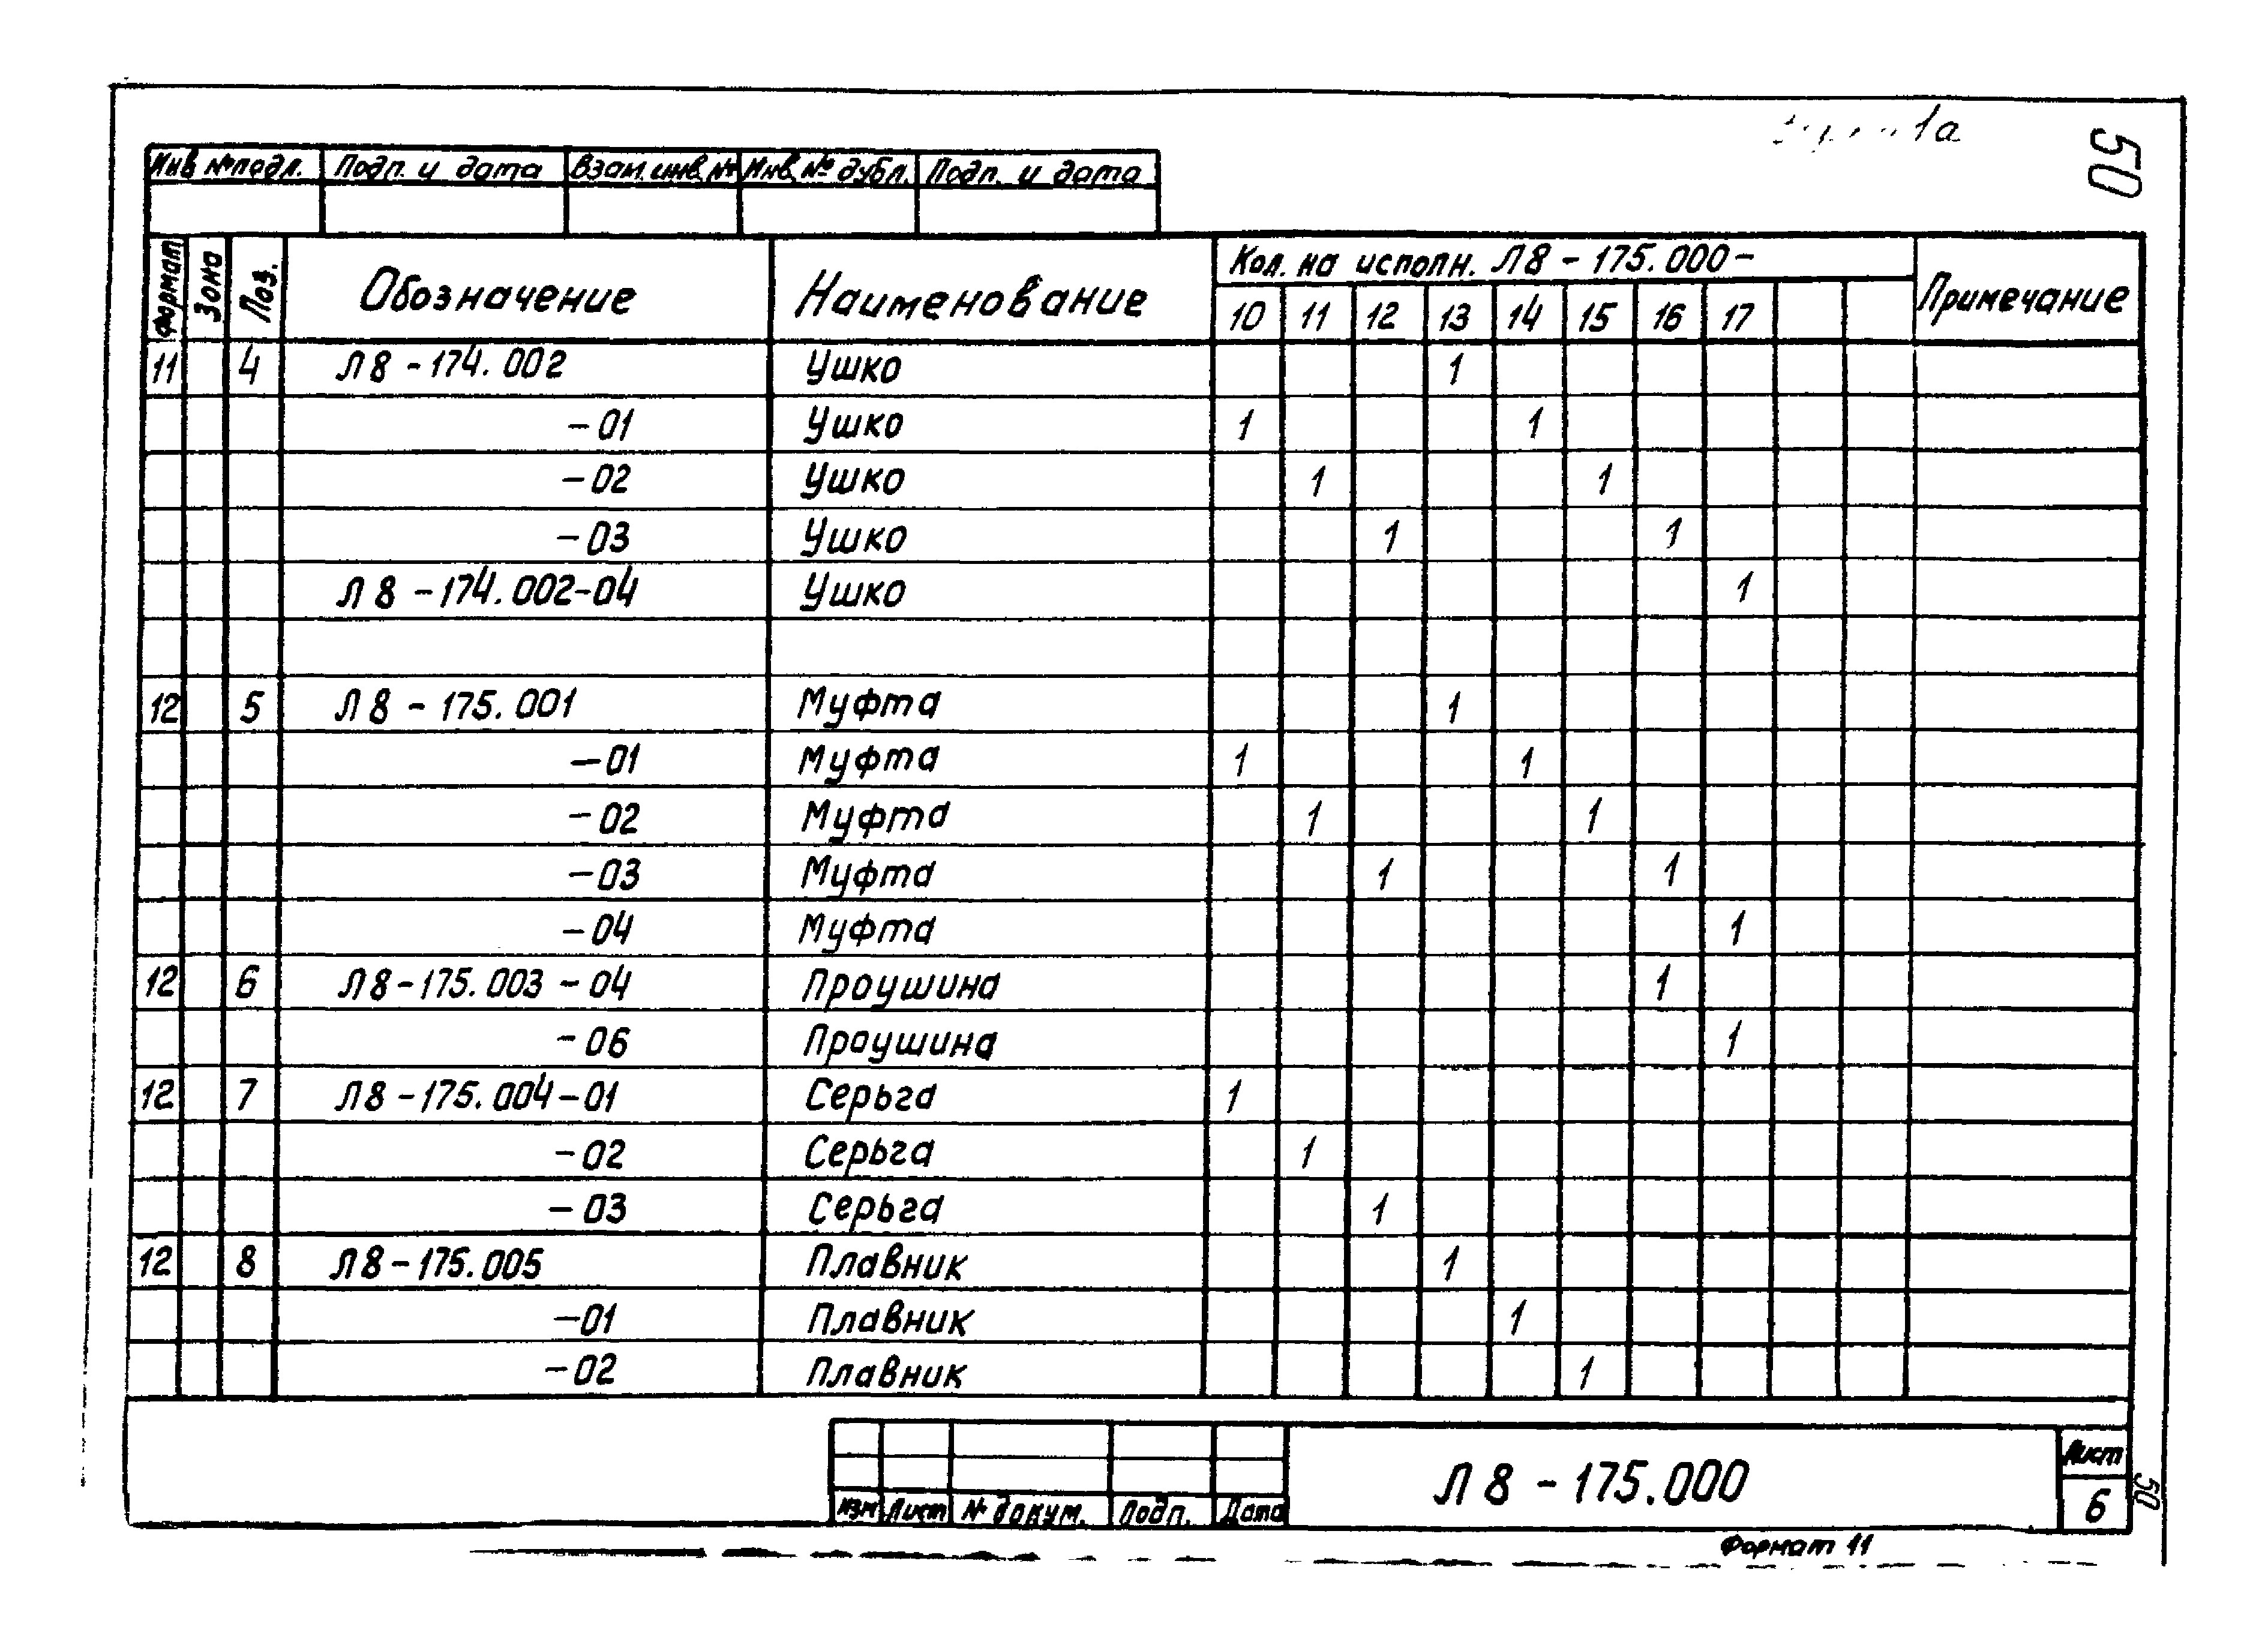 1а
50
Инв № подл. Подп. и дата Взам. инв. № Инв. № дубл. Подп. и дата
Формат Зона Поз. Обозначение Наименование Кол. на исполн. Л8-175.000- Примечание
10 11 12 13 14 15 16 17
11 4 Л8-174.002 Ушко 1
-01 Ушко 1 1
-02 Ушко 1 1
-03 Ушко 1 1
Л8-174.002-04 Ушко 1
12 5 Л8-175.001 Муфта 1
-01 Муфта 1 1
-02 Муфта 1 1
-03 Муфта 1 1
-04 Муфта 1
12 6 Л8-175.003-04 Проушина 1
-06 Проушина 1
12 7 Л8-175.004-01 Серьга 1
-02 Серьга 1
-03 Серьга 1
12 8 Л8-175.005 Плавник 1
-01 Плавник 1
-02 Плавник 1
Изм Лист № докум. Подп. Дата Л8-175.000 Лист
6
50
Формат 11